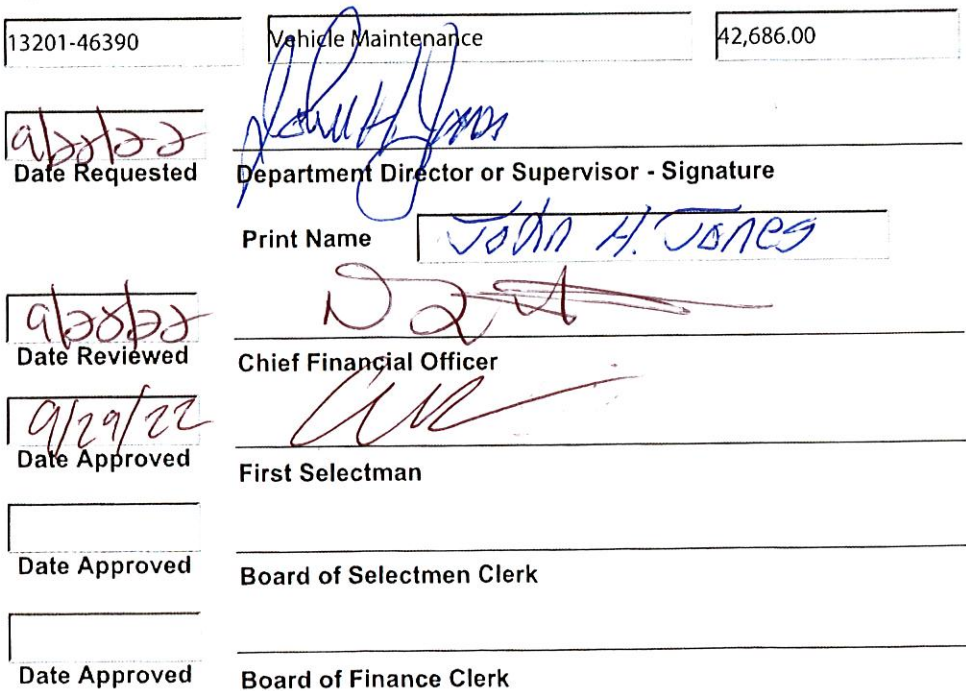 13201-46390 Vehicle Maintenance 42,686.00
9/22/22 John H. Jones
Date Requested Department Director or Supervisor - Signature
Print Name John H. Jones
9/28/22
Date Reviewed Chief Financial Officer
9/29/22
Date Approved First Selectman
Date Approved Board of Selectmen Clerk
Date Approved Board of Finance Clerk